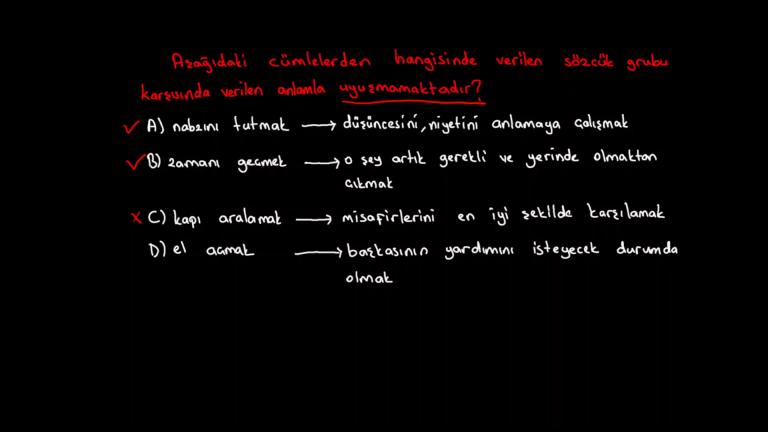 Aşağıdaki cümlelerden hangisinde verilen sözcük grubu
karşısında verilen anlamla uyuşmamaktadır?
✓ A) nabzını tutmak → düşüncesini, niyetini anlamaya çalışmak
✓ B) zamanı geçmek → o şey artık gerekli ve yerinde olmaktan
çıkmak
x C) kapı aralamak → misafirlerini en iyi şekilde karşılamak
D) el açmak → başkasının yardımını isteyecek durumda
olmak